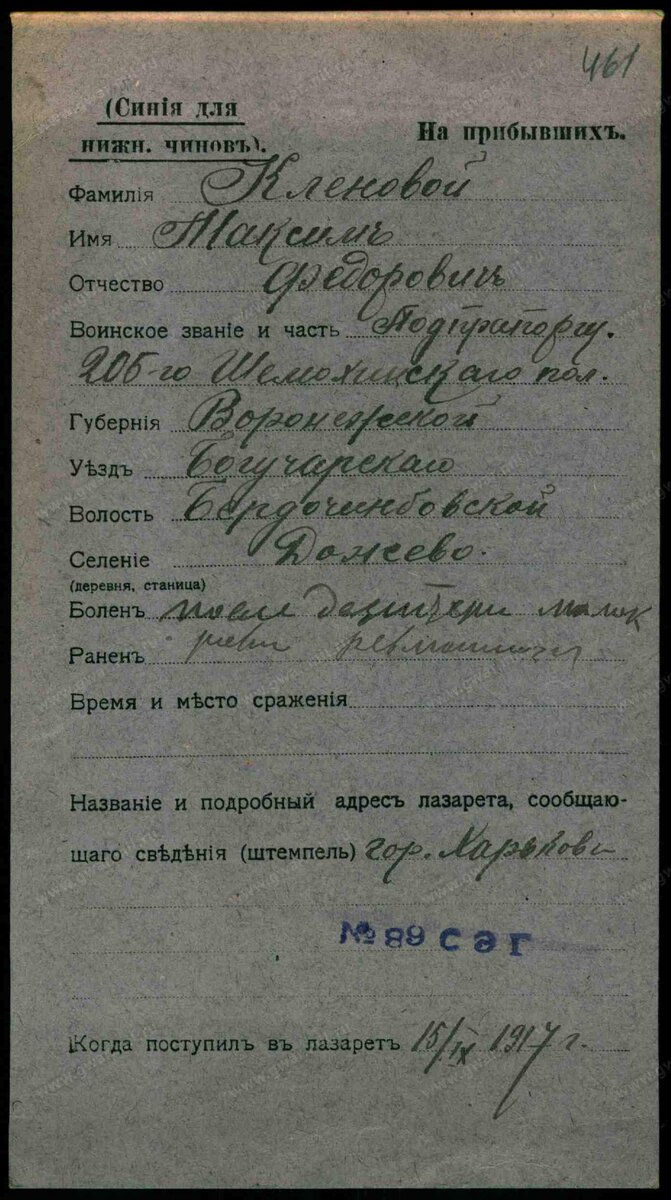 461
(Синія для
нижн. чиновъ).
На прибывшихъ.
Фамилія Кленовой
Имя Максимъ
Отчество Федоровичъ
Воинское званіе и часть Подпрапорщ.
205-го Шемахинскаго пол.
Губернія Воронежской
Уѣздъ Богучарскаго
Волость
Селеніе
(деревня, станица)
Боленъ после
Раненъ
Время и мѣсто сраженія
Названіе и подробный адресъ лазарета, сообщаю-
щаго свѣдѣнія (штемпель) гор. Харьковъ
№ 89 С Э Г
Когда поступилъ въ лазаретъ 15/IX 1917 г.